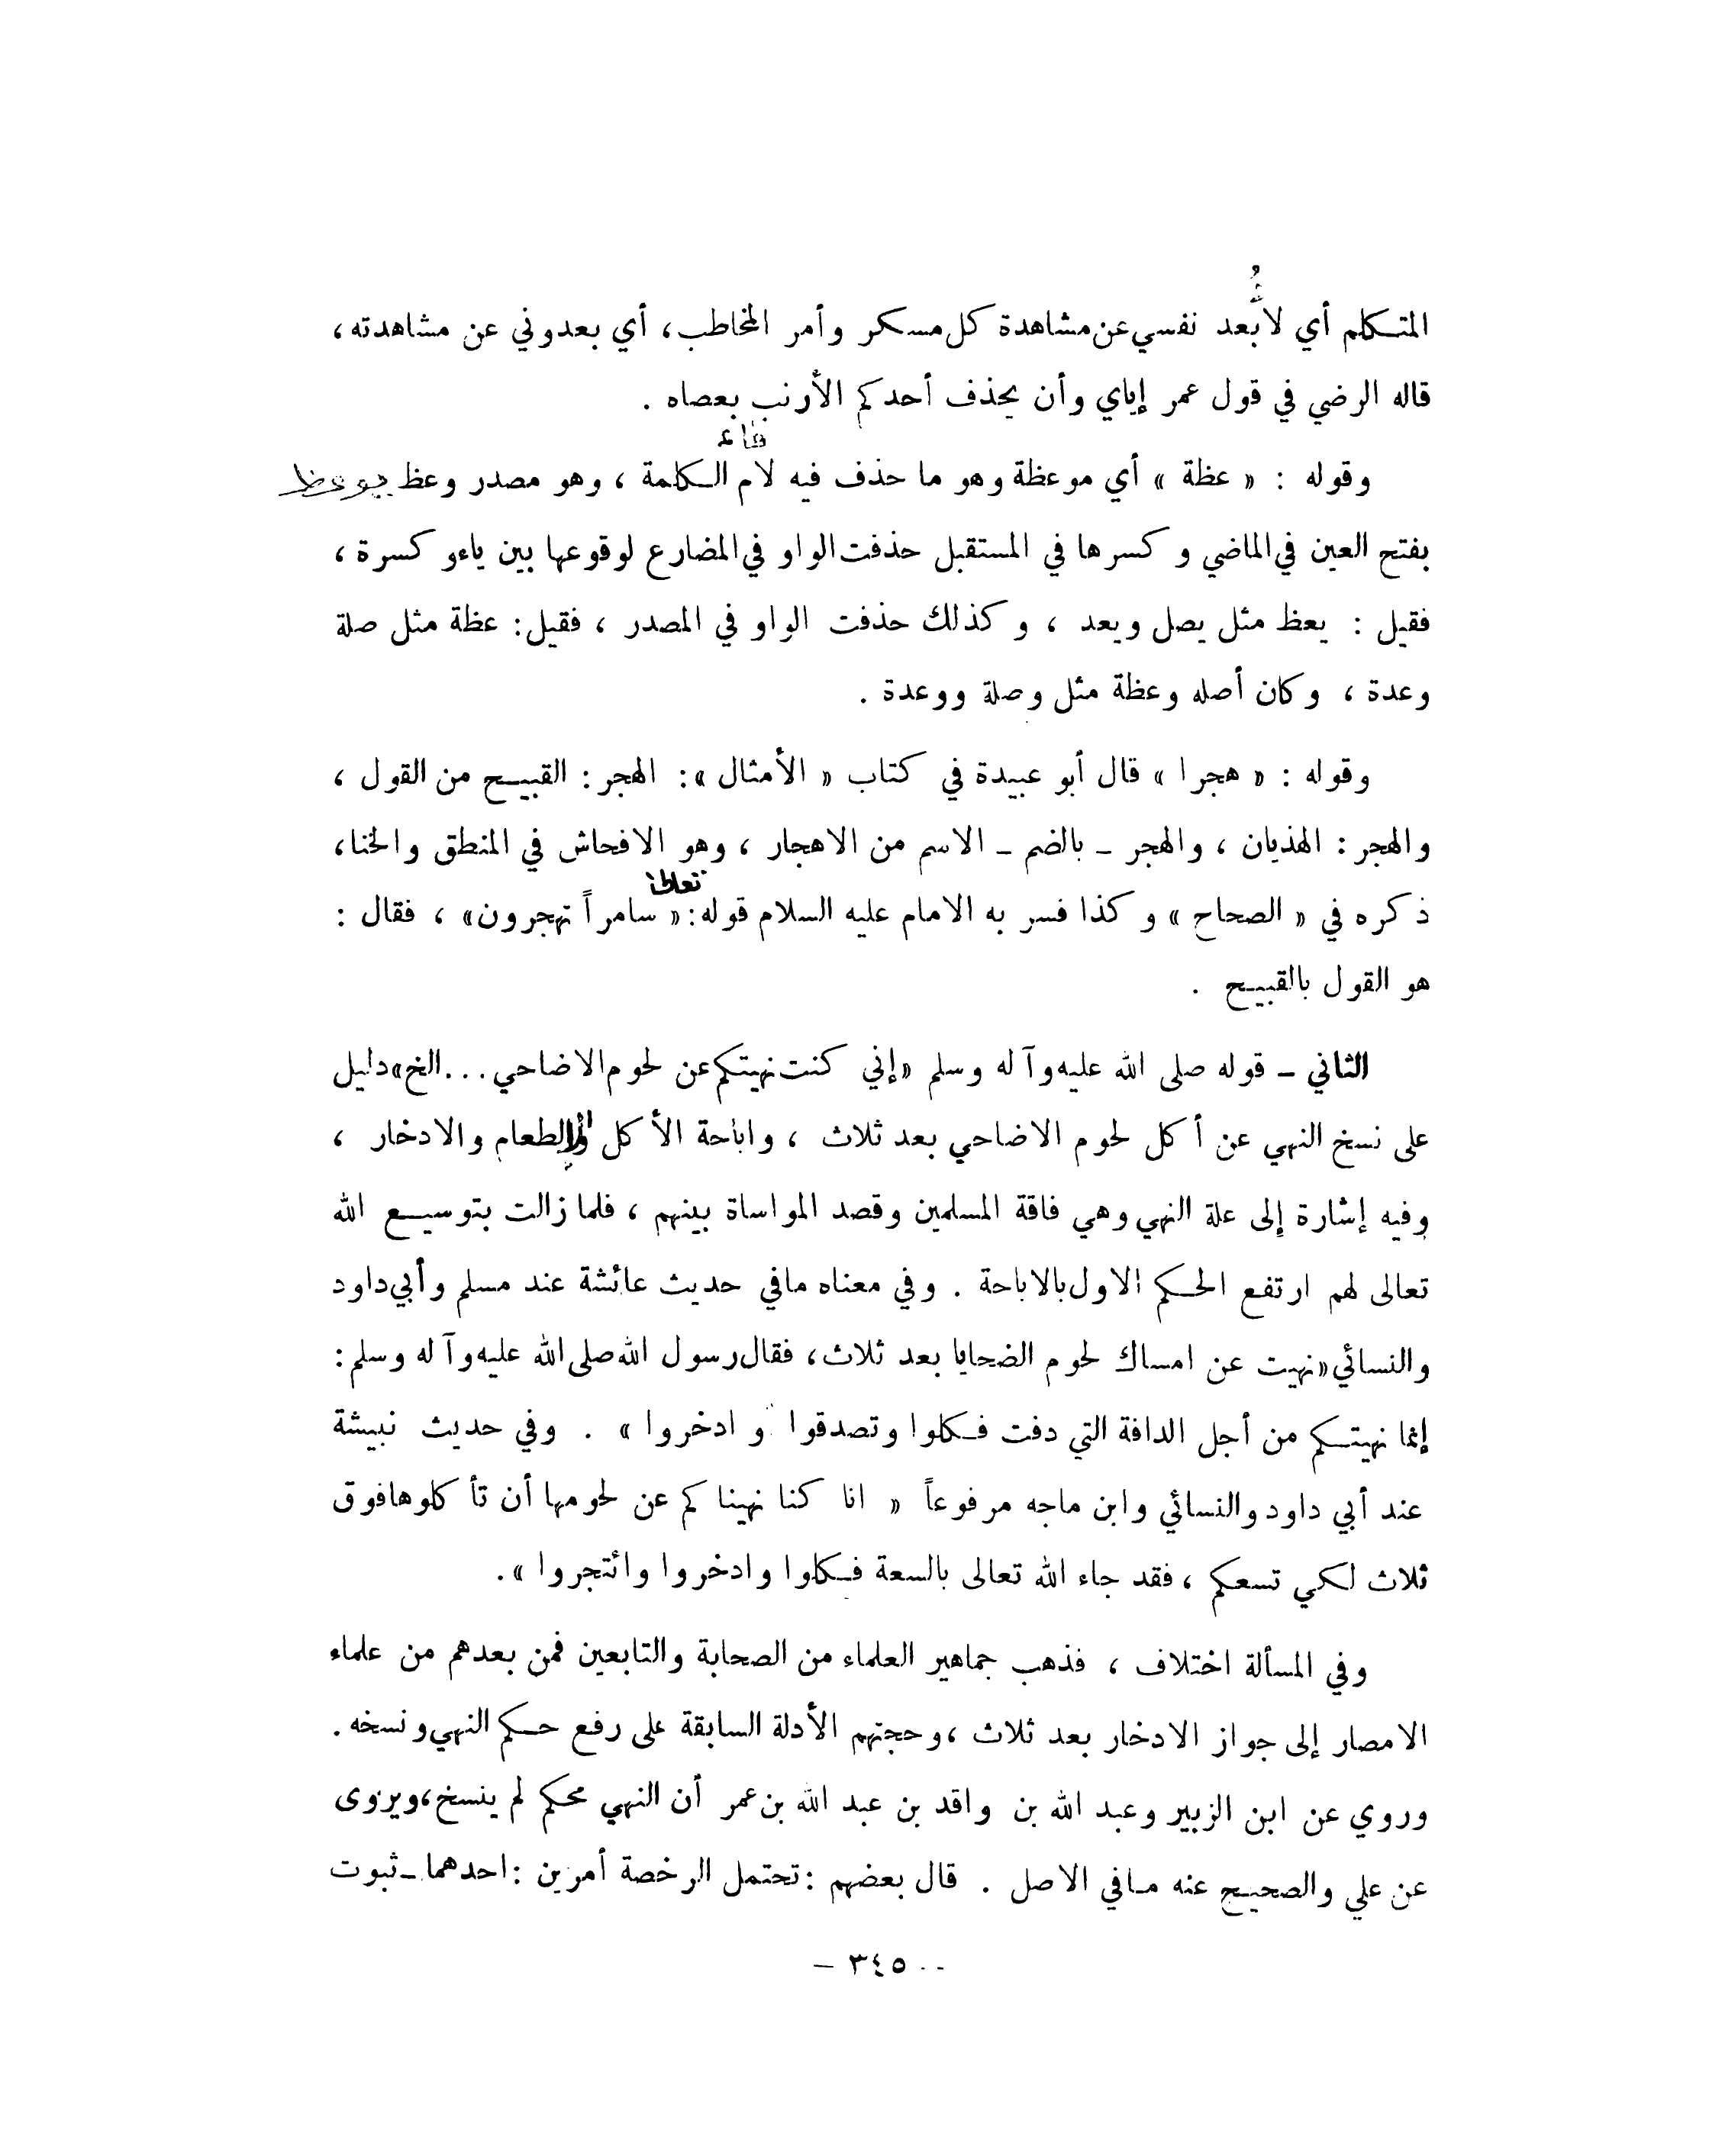 المتكلم أي لأبعد نفسي عن مشاهدة كل مسكر وأمر المخاطب، أي بعدوني عن مشاهدته،
قاله الرضي في قول عمر إياي وأن يحذف أحدكم الأرنب بعصاه .
فاء
وقوله : « عظة » أي موعظة وهو ما حذف فيه لام الكلمة ، وهو مصدر وعظ يوعظ
بفتح العين في الماضي وكسرها في المستقبل حذفت الواو في المضارع لوقوعها بين ياء وكسرة ،
فقيل : يعظ مثل يصل ويعد ، وكذلك حذفت الواو في المصدر ، فقيل: عظة مثل صلة
وعدة ، وكان أصله وعظة مثل وصلة ووعدة .
وقوله : « هجرا » قال أبو عبيدة في كتاب « الأمثال »: الهجر : القبيح من القول ،
والهجر : الهذيان ، والهجر ـ بالضم ـ الاسم من الاهجار ، وهو الافحاش في المنطق والخنا،
تعالى
ذكره في « الصحاح » وكذا فسر به الامام عليه السلام قوله: « سامراً تهجرون» ، فقال :
هو القول بالقبيح .
الثاني ـ قوله صلى الله عليه وآله وسلم «إني كنت نهيتكم عن لحوم الاضاحي...الخ» دليل
على نسخ النهي عن أكل لحوم الاضاحي بعد ثلاث ، واباحة الأكل والطعام والادخار ،
وفيه إشارة إلى علة النهي وهي فاقة المسلمين وقصد المواساة بينهم ، فلما زالت بتوسيع الله
تعالى لهم ارتفع الحكم الاول بالاباحة . وفي معناه مافي حديث عائشة عند مسلم وأبي داود
والنسائي «نهيت عن امساك لحوم الضحايا بعد ثلاث، فقال رسول الله صلى الله عليه وآله وسلم:
إنما نهيتكم من أجل الدافة التي دفت فكلوا وتصدقوا وادخروا » . وفي حديث نبيشة
عند أبي داود والنسائي وابن ماجه مرفوعاً « انا كنا نهيناكم عن لحومها أن تأكلوها فوق
ثلاث لكي تسعكم ، فقد جاء الله تعالى بالسعة فكلوا وادخروا وائتجروا ».
وفي المسألة اختلاف ، فذهب جماهير العلماء من الصحابة والتابعين فمن بعدهم من علماء
الامصار إلى جواز الادخار بعد ثلاث ،وحجتهم الأدلة السابقة على رفع حكم النهي ونسخه .
وروي عن ابن الزبير وعبد الله بن واقد بن عبد الله بن عمر أن النهي محكم لم ينسخ،ويروى
عن علي والصحيح عنه مافي الاصل . قال بعضهم :تحتمل الرخصة أمرين :احدهما ـ ثبوت
- ٣٤٥ -